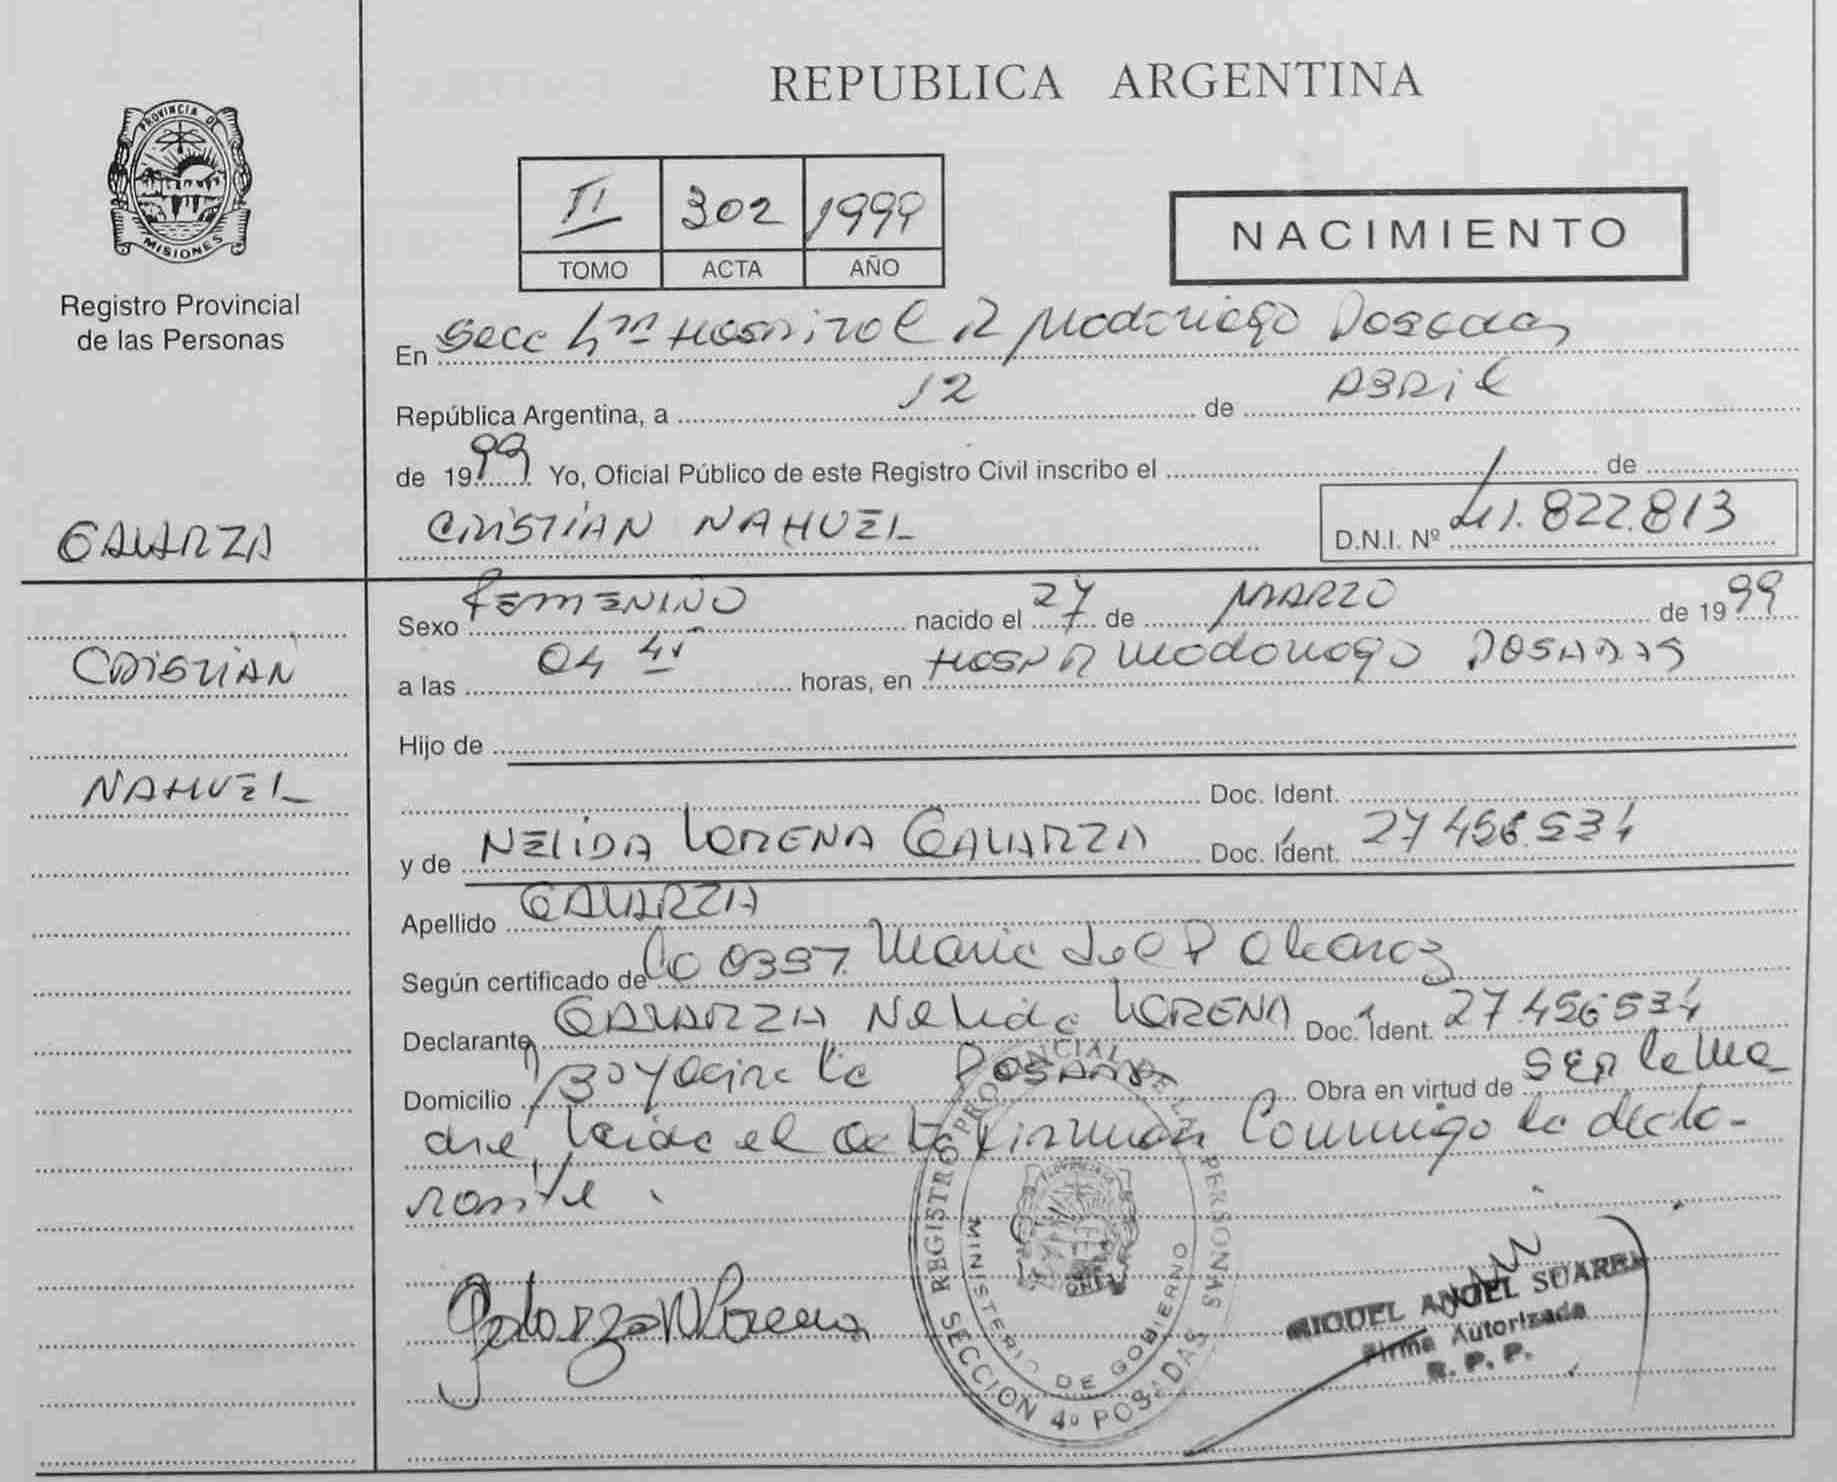 REPUBLICA ARGENTINA
PROVINCIA DE
MISIONES
Registro Provincial
de las Personas
II 302 1999
TOMO ACTA AÑO
NACIMIENTO
En Secc 4ta Hospital R Madariaga Posadas
República Argentina, a 12 de ABRIL
de 1999 Yo, Oficial Público de este Registro Civil inscribo el de
GALARZA
CRISTIAN NAHUEL
D.N.I. Nº 41.822.813
Sexo FEMENINO nacido el 27 de MARZO de 1999
CRISTIAN
a las 04 horas, en HOSP R Madariaga POSADAS
Hijo de
NAHUEL
Doc. Ident.
y de NELIDA LORENA GALARZA Doc. Ident. 27456.534
Apellido GALARZA
Según certificado de Co 0397 Maria del P Alcaraz
Declarante GALARZA Nelida LORENA Doc. Ident. 27.456534
Domicilio Bº Yacireta POSADAS Obra en virtud de SER la Ma
dre, leida el acta firman Conmigo la decla-
rante.
Galarza N Lorena
REGISTRO PROVINCIAL DE LAS PERSONAS
MINISTERIO DE GOBIERNO
SECCION 4º POSADAS
MIGUEL ANGEL SUAREZ
Firma Autorizada
R. P. P.